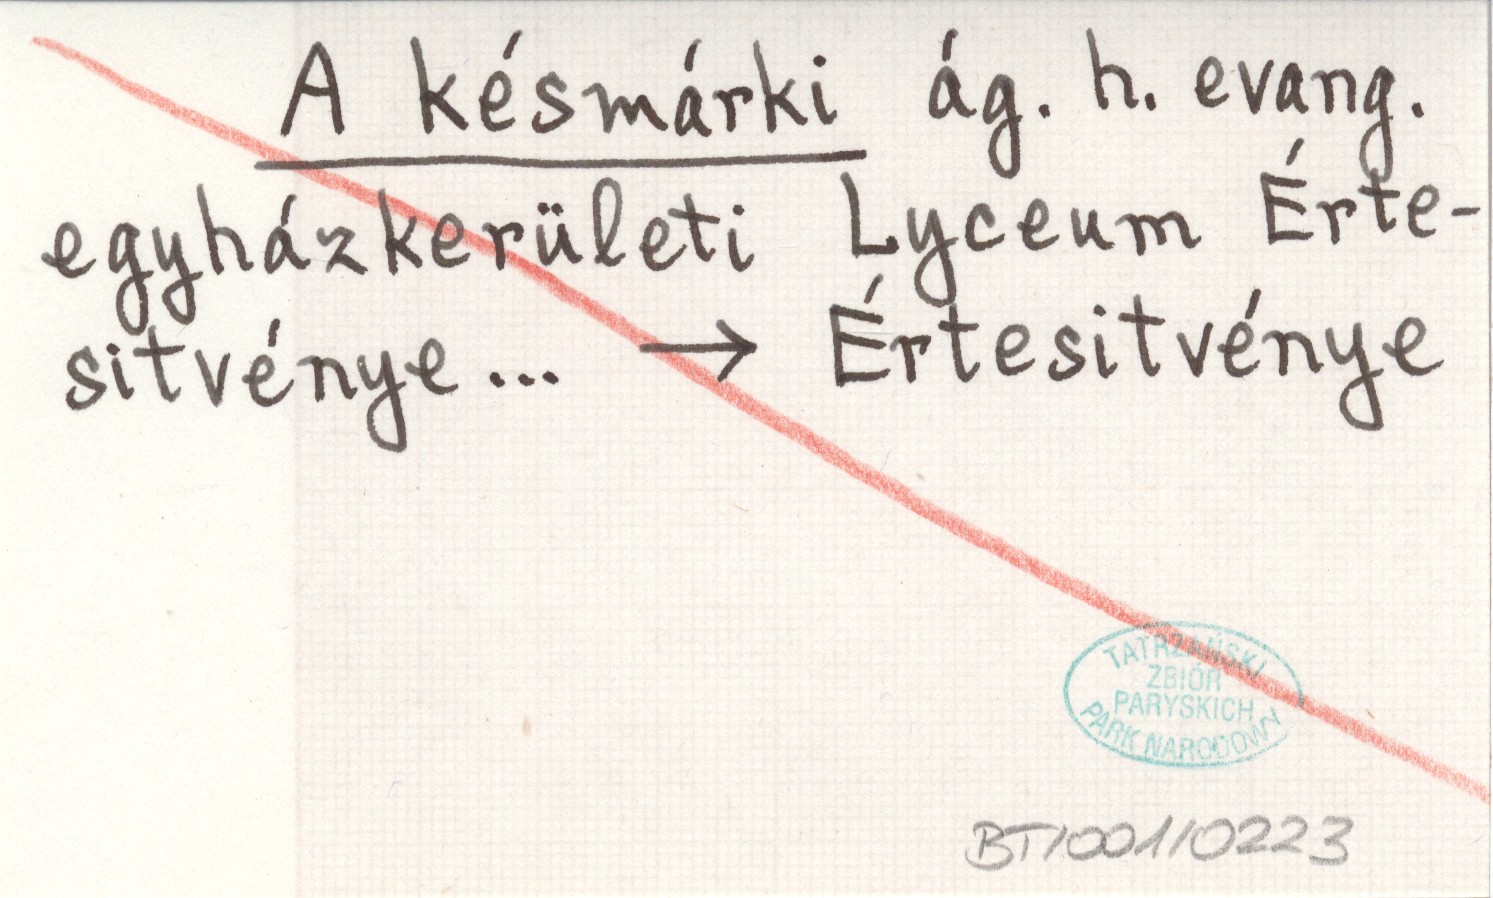 A késmárki ág. h. evang.
egyházkerületi Lyceum Érte-
sitvénye... → Értesitvénye
TATRZAŃSKI
ZBIÓR
PARYSKICH
PARK NARODOWY
BT/001/0223